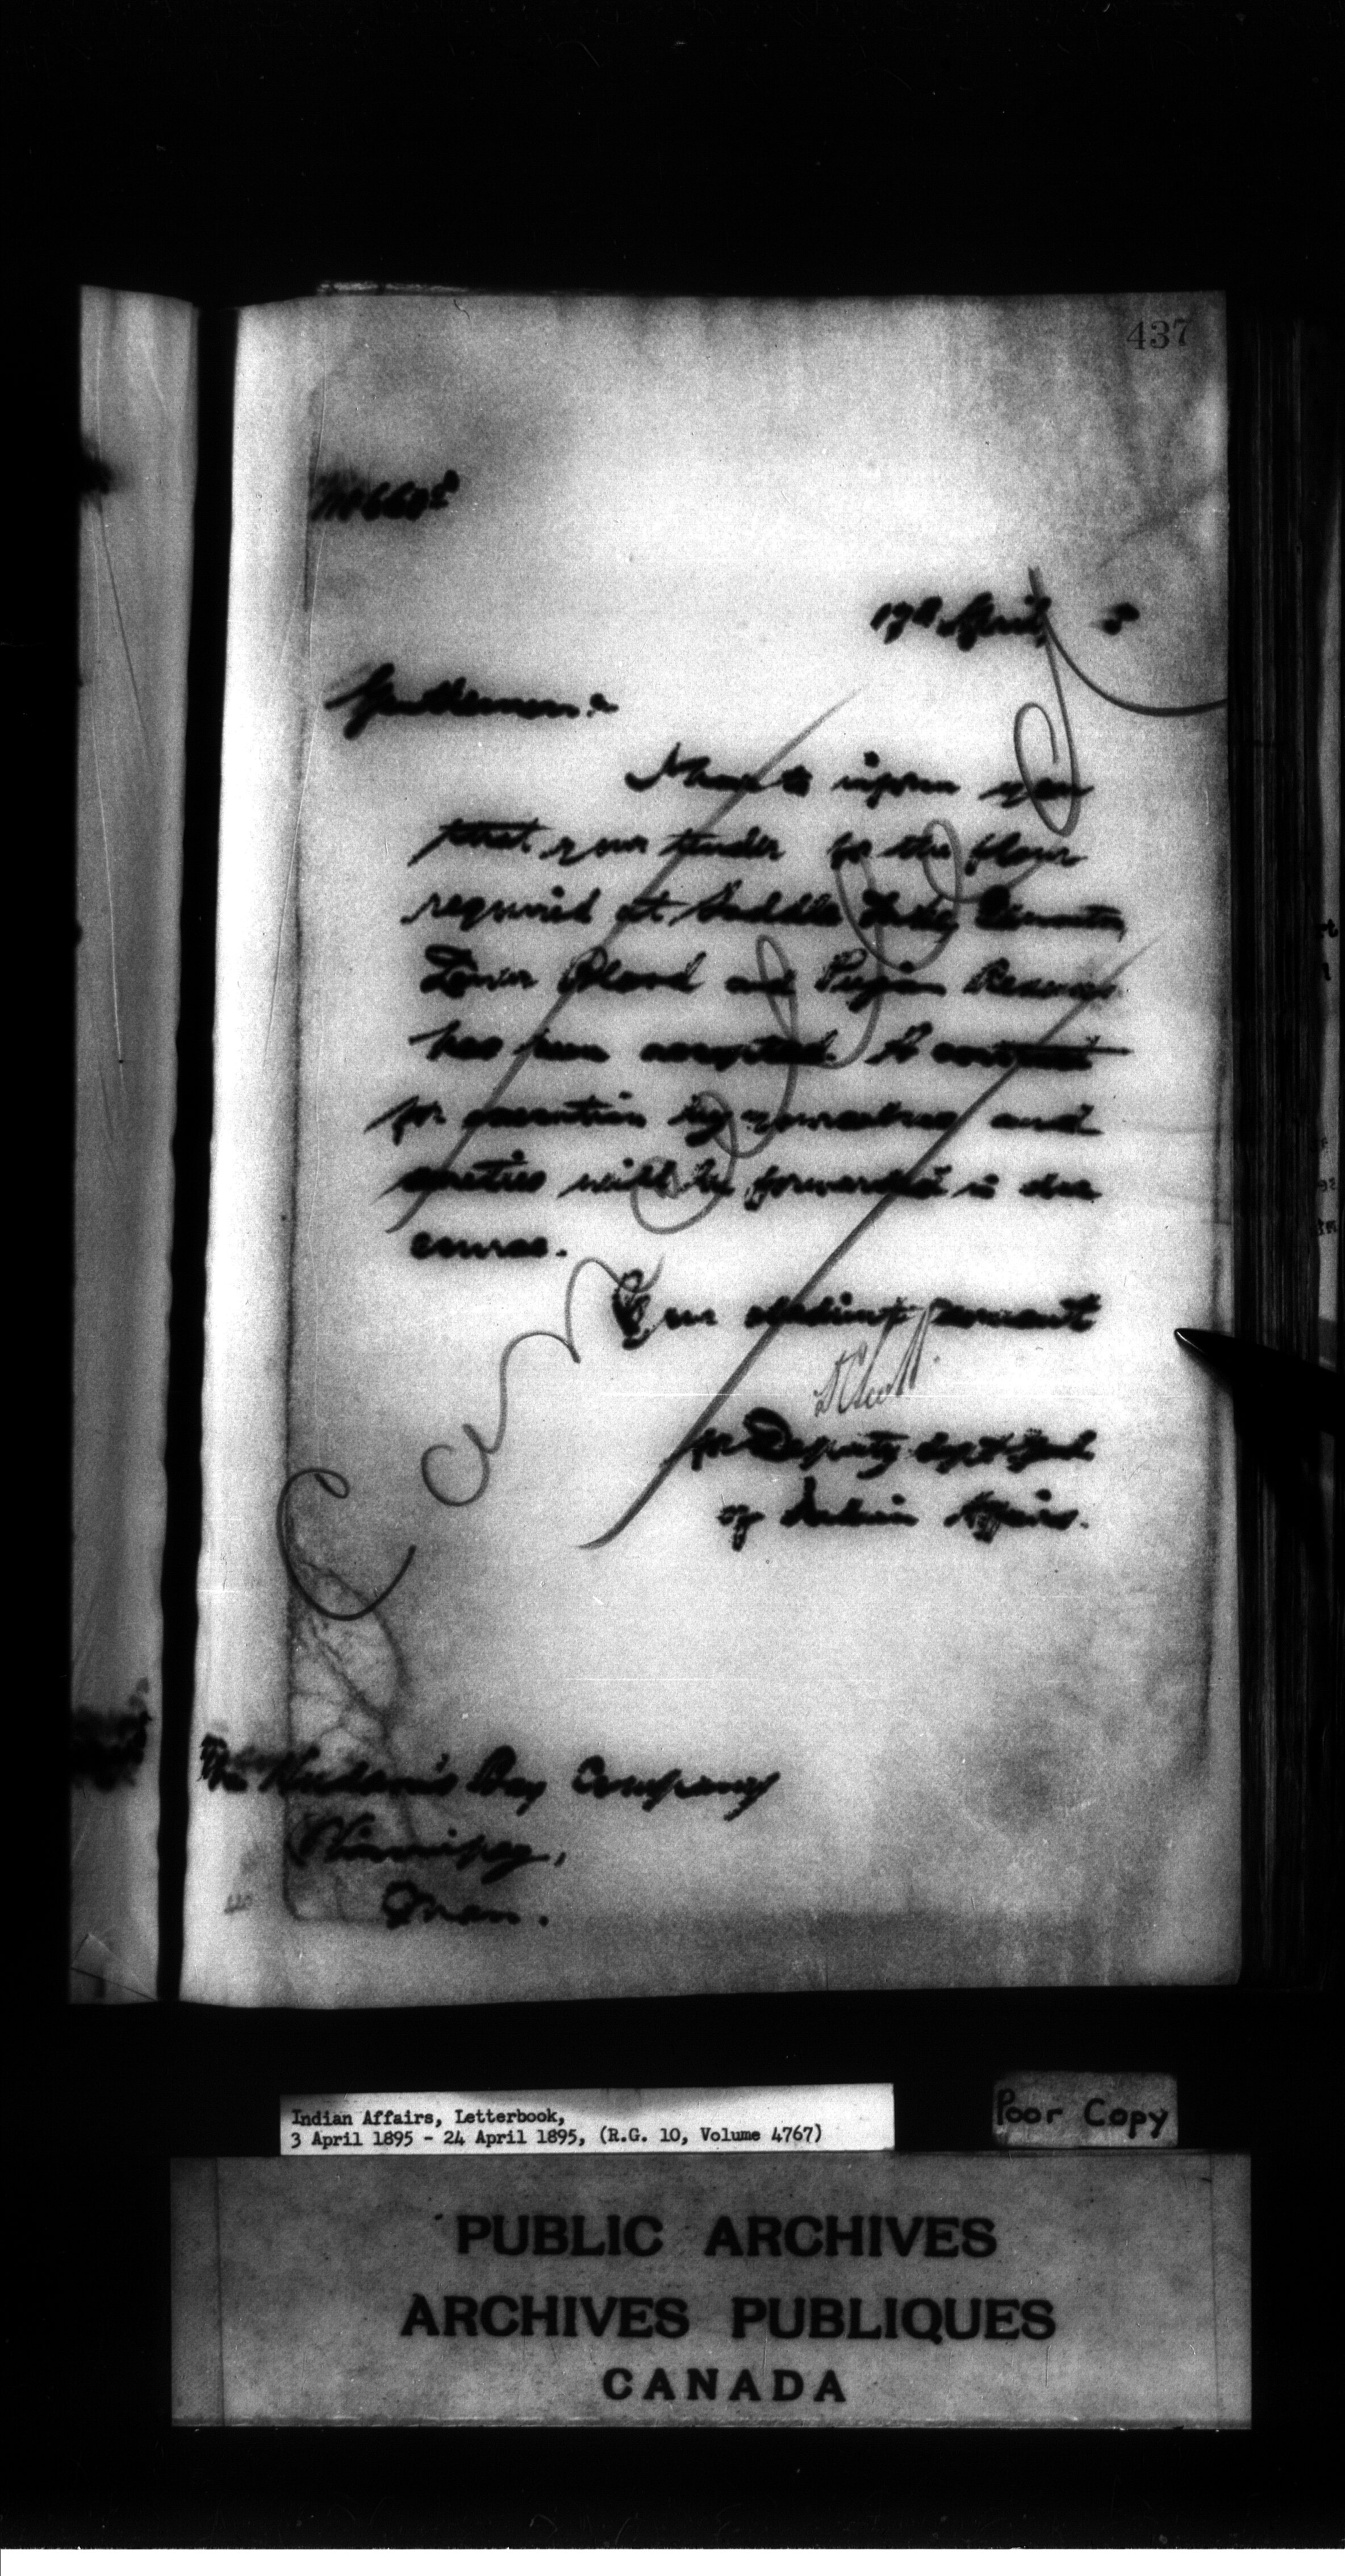 437
17th April, 5
Gentlemen:-
I have to inform you
that your tender for the flour
required at Saddle Lake, Edmonton,
Lower Blood and Peigan Reserves
has been accepted. A contract
for execution by yourselves and
sureties will be forwarded in due
course.
Your obedient servant
D C Scott.
for Deputy Supt. Genl.
of Indian Affairs.
Cancelled
The Hudson's Bay Company
Winnipeg,
Man.
Indian Affairs, Letterbook,
3 April 1895 - 24 April 1895, (R.G. 10, Volume 4767)
Poor Copy
PUBLIC ARCHIVES
ARCHIVES PUBLIQUES
CANADA